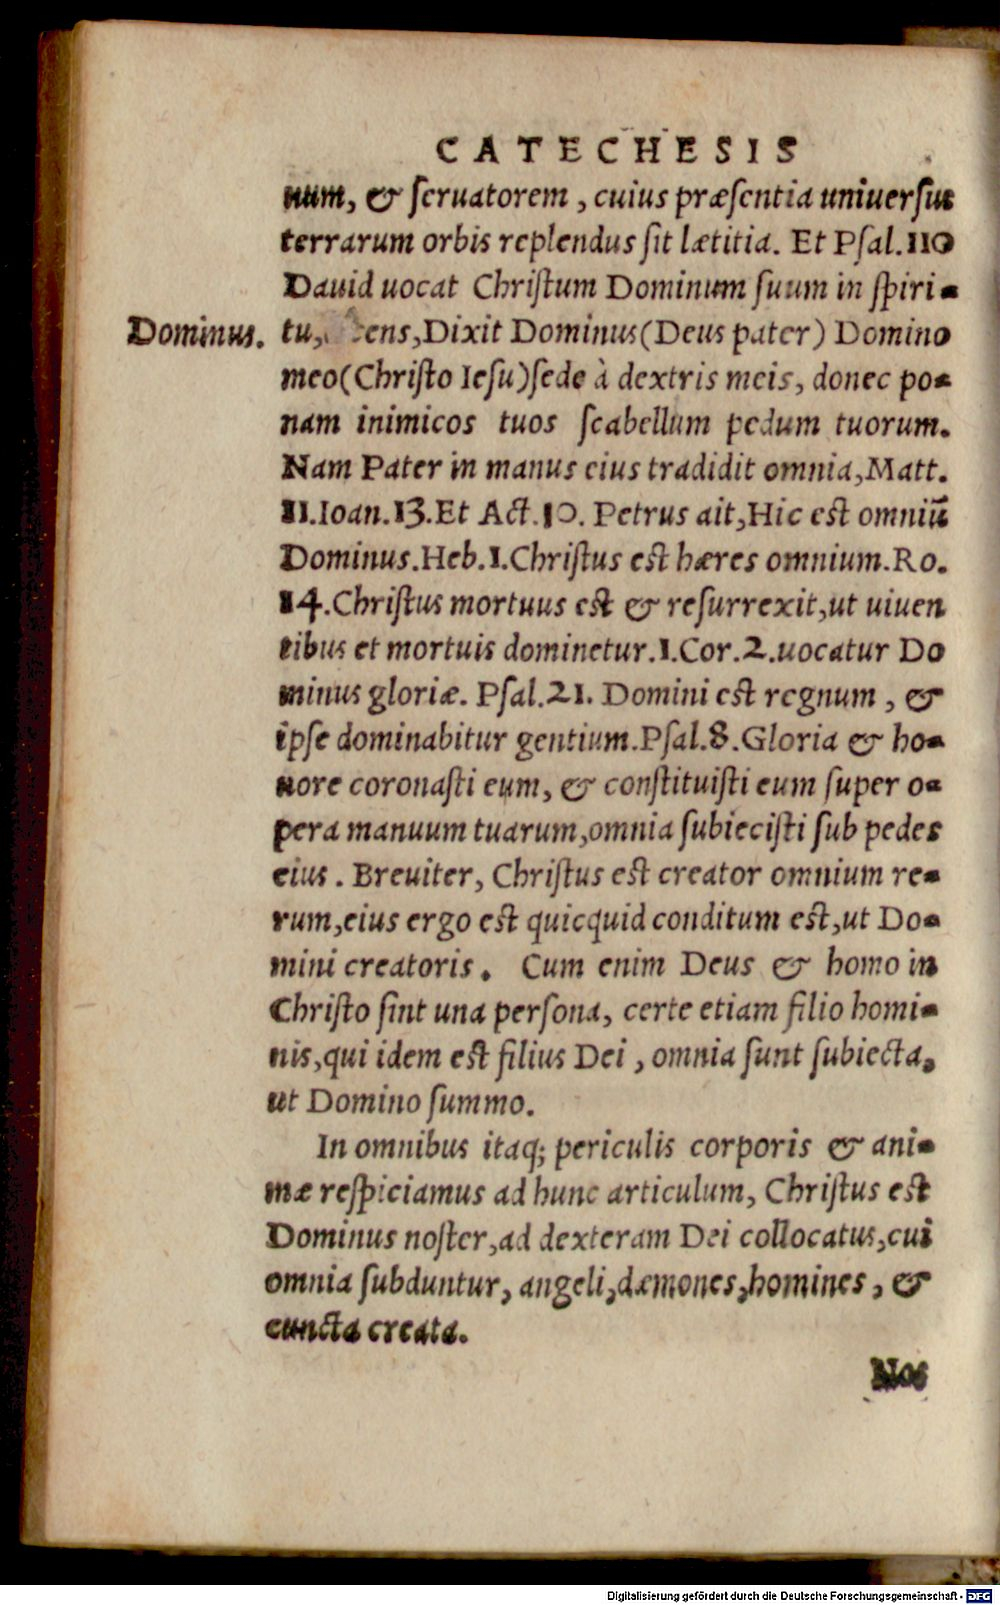 CATECHESIS
num, & ſeruatorem, cuius præſentia uniuerſus
terrarum orbis replendus ſit lætitia. Et Pſal.110
Dauid uocat Chriſtum Dominum ſuum in ſpiri-
Dominus.
tu, Dixit Dominus(Deus pater) Domino
meo(Chriſto Ieſu)ſede à dextris meis, donec po-
nam inimicos tuos ſcabellum pedum tuorum.
Nam Pater in manus eius tradidit omnia,Matt.
11.Ioan.13.Et Act.10. Petrus ait,Hic eſt omniū
Dominus.Heb.1.Chriſtus eſt hæres omnium.Ro.
14.Chriſtus mortuus eſt & reſurrexit,ut uiuen
tibus et mortuis dominetur.1.Cor.2.uocatur Do
minus gloriæ. Pſal.21. Domini eſt regnum, &
ipſe dominabitur gentium.Pſal.8.Gloria & ho-
nore coronaſti eum, & conſtituiſti eum ſuper o-
pera manuum tuarum,omnia ſubieciſti ſub pedes
eius. Breuiter, Chriſtus eſt creator omnium re-
rum,eius ergo eſt quicquid conditum eſt,ut Do-
mini creatoris. Cum enim Deus & homo in
Chriſto ſint una perſona, certe etiam filio homi-
nis,qui idem eſt filius Dei, omnia ſunt ſubiecta,
ut Domino ſummo.
In omnibus itaq; periculis corporis & ani-
mæ reſpiciamus ad hunc articulum, Chriſtus eſt
Dominus noſter,ad dexteram Dei collocatus,cui
omnia ſubduntur, angeli,dæmones,homines, &
cuncta creata.
Nos
Digitalisierung gefördert durch die Deutsche Forschungsgemeinschaft - DFG